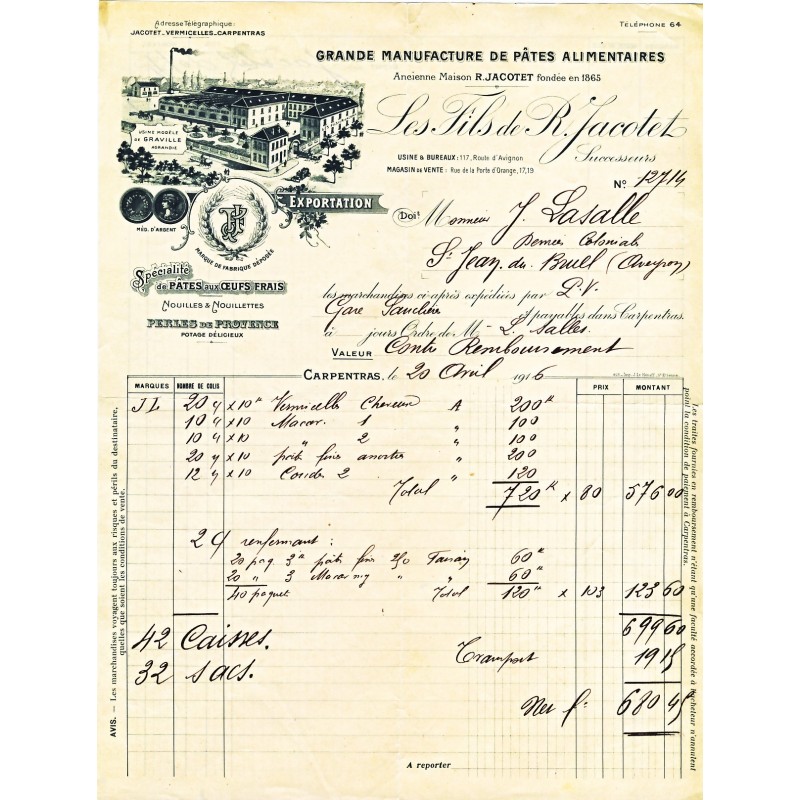 Adresse Télégraphique:
JACOTET-VERMICELLES-CARPENTRAS
TÉLÉPHONE 64
GRANDE MANUFACTURE DE PÂTES ALIMENTAIRES
Ancienne Maison R. JACOTET fondée en 1865
Les Fils de R. Jacotet
Successeurs
USINE MODÈLE
DE GRAVILLE
AGRANDIE
USINE & BUREAUX: 117, Route d'Avignon
MAGASIN DE VENTE: Rue de la Porte d'Orange, 17, 19
No. 12714
EXPORTATION
MÉD. D'ARGENT
JF
MARQUE DE FABRIQUE DÉPOSÉE
Doit Monsieur J. Lasalle
Denrées Coloniales
St Jean du Bruel (Aveyron)
Spécialité
de PÂTES aux ŒUFS FRAIS
NOUILLES & NOUILLETTES
PERLES DE PROVENCE
POTAGE DÉLICIEUX
les marchandises ci-après expédiées par P.V.
Gare Sauclière payables dans Carpentras
à jours Ordre de M L. Salles.
VALEUR Contre Remboursement
CARPENTRAS, le 20 Avril 1916
MARQUES NOMBRE DE COLIS PRIX MONTANT
JL 20 x 10 k Vermicelle Cheveux A 200 k
10 x 10 Macar. 1 " 100
10 x 10 " 2 " 100
20 x 10 pâtes fines assorties " 200
12 x 10 Coudes 2 " 120
Total 720 k x 80 576 00
2 renfermant:
20 paq. 3 k pâtes fines 60 k
20 " 3 " " 60 k
40 paquet Total 120 k x 103 123 60
699 60
42 Caisses. Transport 19 15
32 sacs.
Net f. 680 45
A reporter
AVIS. — Les marchandises voyagent toujours aux risques et périls du destinataire,
quelles que soient les conditions de vente.
Les traites fournies en remboursement n'étant qu'une faculté accordée à l'acheteur n'annulent
point la condition de paiement à Carpentras.